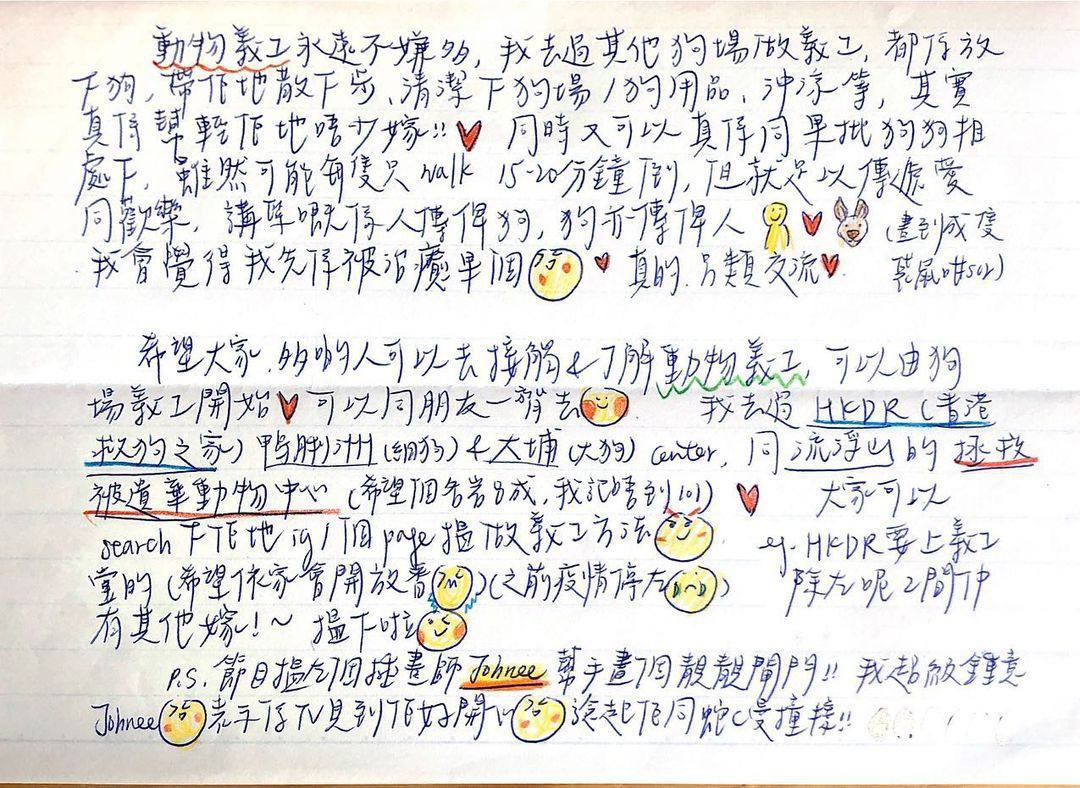 動物義工永遠不嫌多，我去過其他狗場做義工，都係放
下狗，帶佢地散下步，清潔下狗場/狗用品，沖涼等，其實
真係幫輕佢地唔少嫁!!♥ 同時又可以真係同果批狗狗相
處下，雖然可能每隻只walk 15-20分鐘倒，但就足以傳遞愛
同歡樂，講緊嘅係人傳俾狗，狗亦傳俾人 ♥ (畫到成隻
我會覺得我先係被治癒果個 ♥ 真的，另類交流♥ 袋鼠咁sor)
希望大家，多啲人可以去接觸&了解動物義工，可以由狗
場義工開始♥可以同朋友一齊去 我去過HKDR (香港
救狗之家) 鴨脷洲(細狗) & 大埔(大狗) center, 同流浮山的拯救
被遺棄動物中心 (希望個名岩8成，我記唔到101) ♥ 大家可以
search 下佢地ig/個page搵做義工方法 eg. HKDR要上義工
堂的 (希望依家會開放番) (之前疫情停左) 除左呢2間仲
有其他嫁!~ 搵下啦
P.S. 節目搵左個插畫師Johnee幫手畫個靚靚閘門!! 我超級鍾意
Johnee 係TV見到佢好開心 佢同蛇 撞樣!!